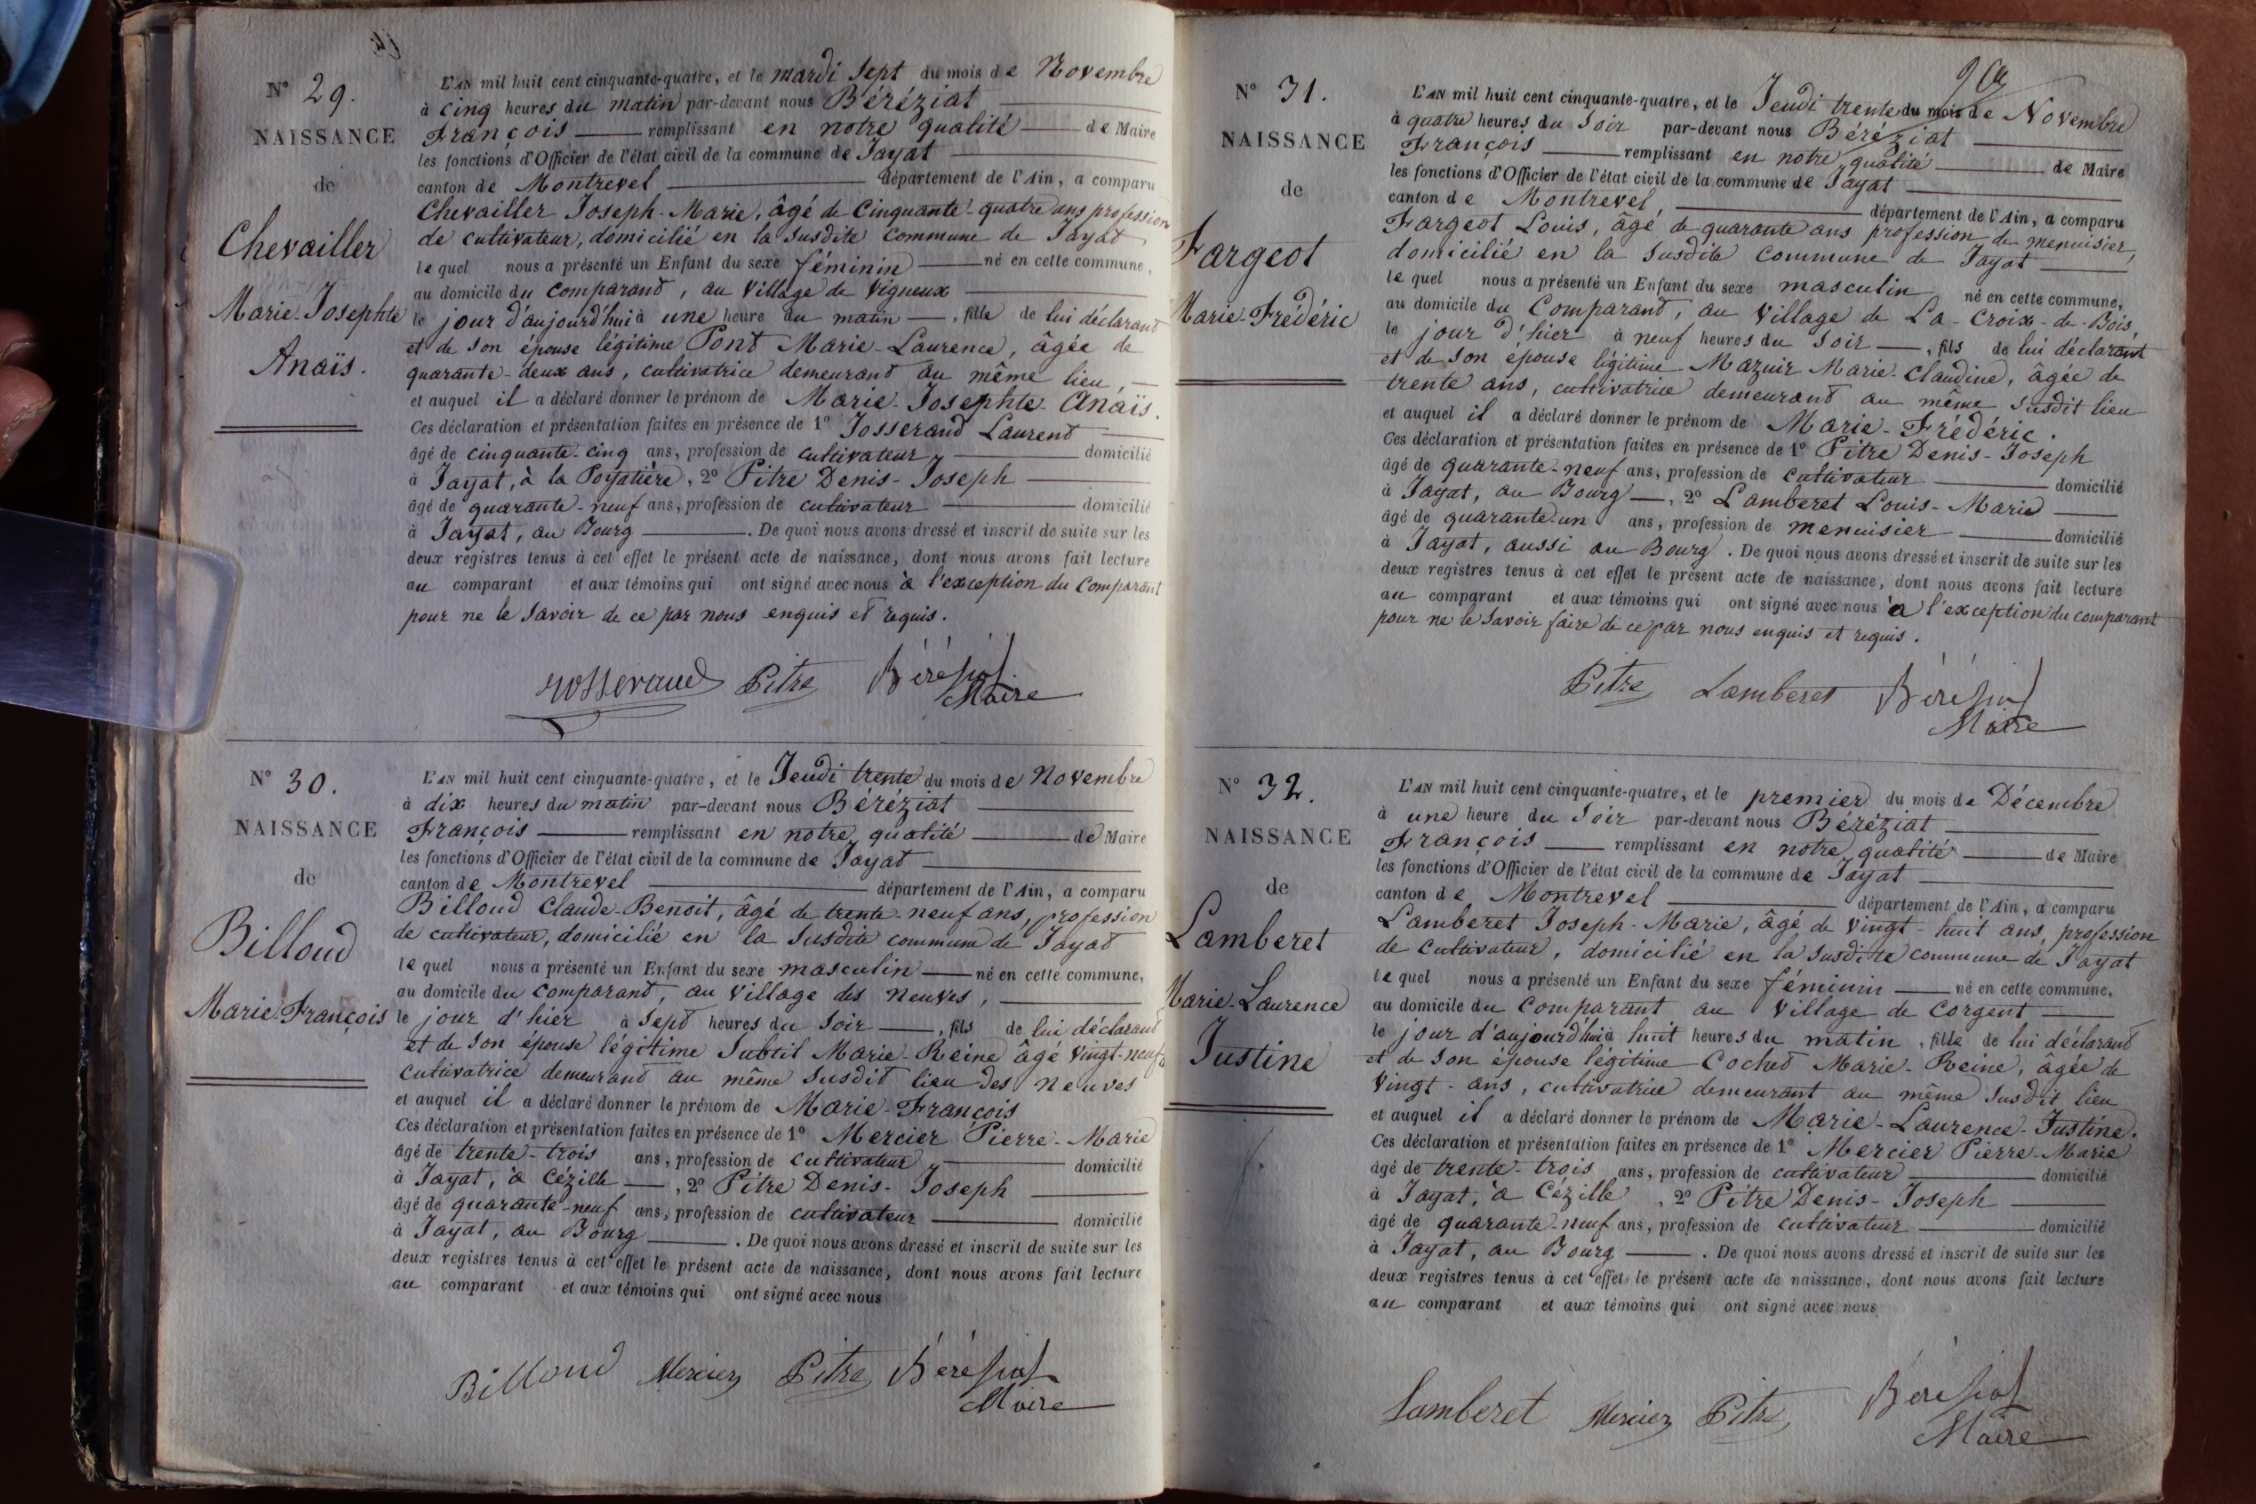 N° 29.
NAISSANCE
de
Chevailler
Marie-Josephte
Anaïs.
L'AN mil huit cent cinquante-quatre, et le mardi sept du mois de Novembre
à cinq heures du matin par-devant nous Béréziat
François remplissant en notre qualité de Maire
les fonctions d'Officier de l'état civil de la commune de Jayat
canton de Montrevel département de l'Ain, a comparu
Chevailler Joseph-Marie, âgé de cinquante-quatre ans profession
de cultivateur, domicilié en la susdite commune de Jayat
lequel nous a présenté un Enfant du sexe féminin né en cette commune,
au domicile du comparand, au village de Vigneux
le jour d'aujourd'hui à une heure du matin, fille de lui déclarand
et de son épouse légitime Pont Marie-Laurence, âgée de
quarante-deux ans, cultivatrice demeurand au même lieu,
et auquel il a déclaré donner le prénom de Marie-Josephte-Anaïs.
Ces déclaration et présentation faites en présence de 1° Josserand Laurend
âgé de cinquante-cinq ans, profession de cultivateur domicilié
à Jayat, à la Poyatière, 2° Pitre Denis-Joseph
âgé de quarante-neuf ans, profession de cultivateur domicilié
à Jayat, au Bourg. De quoi nous avons dressé et inscrit de suite sur les
deux registres tenus à cet effet le présent acte de naissance, dont nous avons fait lecture
au comparant et aux témoins qui ont signé avec nous à l'exception du comparant
pour ne le savoir de ce par nous enquis et requis.
Josserand Pitre Béréziat
Maire
N° 30.
NAISSANCE
de
Billoud
Marie-François
L'AN mil huit cent cinquante-quatre, et le Jeudi trente du mois de Novembre
à dix heures du matin par-devant nous Béréziat
François remplissant en notre qualité de Maire
les fonctions d'Officier de l'état civil de la commune de Jayat
canton de Montrevel département de l'Ain, a comparu
Billoud Claude-Benoit, âgé de trente-neuf ans, profession
de cultivateur, domicilié en la susdite commune de Jayat
lequel nous a présenté un Enfant du sexe masculin né en cette commune,
au domicile du comparand, au village des Neuves,
le jour d'hier à sept heures du soir, fils de lui déclarand
et de son épouse légitime Subtil Marie-Reine âgé vingt-neuf
cultivatrice demeurand au même susdit lieu des neuves
et auquel il a déclaré donner le prénom de Marie-François
Ces déclaration et présentation faites en présence de 1° Mercier Pierre-Marie
âgé de trente-trois ans, profession de cultivateur domicilié
à Jayat, à Cézille, 2° Pitre Denis-Joseph
âgé de quarante-neuf ans, profession de cultivateur domicilié
à Jayat, au Bourg. De quoi nous avons dressé et inscrit de suite sur les
deux registres tenus à cet effet le présent acte de naissance, dont nous avons fait lecture
au comparant et aux témoins qui ont signé avec nous
Billoud Mercier Pitre Béréziat
Maire
N° 31.
NAISSANCE
de
Fargeot
Marie-Frédéric
L'AN mil huit cent cinquante-quatre, et le Jeudi trente du mois de Novembre
à quatre heures du soir par-devant nous Béréziat
François remplissant en notre qualité de Maire
les fonctions d'Officier de l'état civil de la commune de Jayat
canton de Montrevel département de l'Ain, a comparu
Fargeot Louis, âgé de quarante ans profession de menuisier,
domicilié en la susdite commune de Jayat
lequel nous a présenté un Enfant du sexe masculin né en cette commune,
au domicile du comparand, au village de La-Croix-de-Bois,
le jour d'hier à neuf heures du soir, fils de lui déclarant
et de son épouse légitime Mazuir Marie-Claudine, âgée de
trente ans, cultivatrice demeurand au même susdit lieu
et auquel il a déclaré donner le prénom de Marie-Frédéric.
Ces déclaration et présentation faites en présence de 1° Pitre Denis-Joseph
âgé de quarante-neuf ans, profession de cultivateur domicilié
à Jayat, au Bourg, 2° Lamberet Louis-Marie
âgé de quarante-un ans, profession de menuisier domicilié
à Jayat, aussi au Bourg. De quoi nous avons dressé et inscrit de suite sur les
deux registres tenus à cet effet le présent acte de naissance, dont nous avons fait lecture
au comparant et aux témoins qui ont signé avec nous à l'exception du comparant
pour ne le savoir faire de ce par nous enquis et requis.
Pitre Lamberet Béréziat
Maire
N° 32.
NAISSANCE
de
Lamberet
Marie-Laurence
Justine
L'AN mil huit cent cinquante-quatre, et le premier du mois de Décembre
à une heure du soir par-devant nous Béréziat
François remplissant en notre qualité de Maire
les fonctions d'Officier de l'état civil de la commune de Jayat
canton de Montrevel département de l'Ain, a comparu
Lamberet Joseph-Marie, âgé de vingt-huit ans, profession
de cultivateur, domicilié en la susdite commune de Jayat
lequel nous a présenté un Enfant du sexe féminin né en cette commune,
au domicile du comparant au village de Corgent
le jour d'aujourd'hui à huit heures du matin, fille de lui déclarand
et de son épouse légitime Cochet Marie-Reine, âgée de
vingt-ans, cultivatrice demeurant au même susdit lieu
et auquel il a déclaré donner le prénom de Marie-Laurence-Justine.
Ces déclaration et présentation faites en présence de 1° Mercier Pierre-Marie
âgé de trente-trois ans, profession de cultivateur domicilié
à Jayat, à Cézille, 2° Pitre Denis-Joseph
âgé de quarante-neuf ans, profession de cultivateur domicilié
à Jayat, au Bourg. De quoi nous avons dressé et inscrit de suite sur les
deux registres tenus à cet effet le présent acte de naissance, dont nous avons fait lecture
au comparant et aux témoins qui ont signé avec nous
Lamberet Mercier Pitre Béréziat
Maire